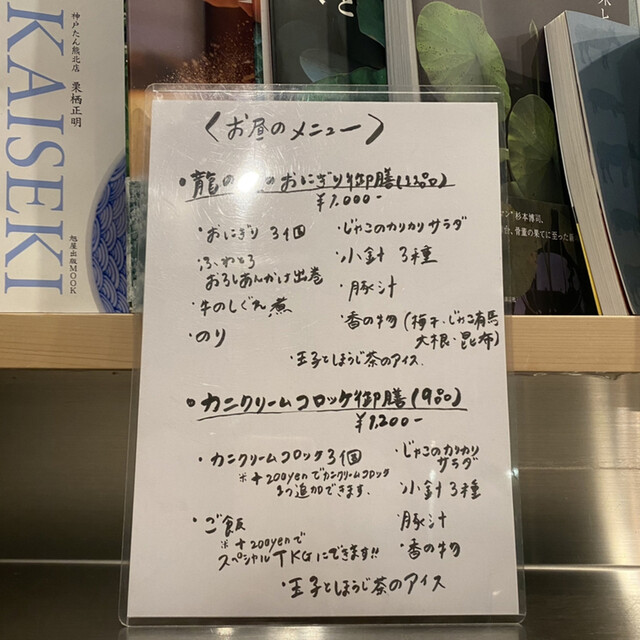 KAISEKI
神戸たん熊北店 栗栖正明
旭屋出版MOOK
杉本博司、
骨董の果てに至った
〈お昼のメニュー〉
・龍の の おにぎり御膳(13品)
¥1.000-
・おにぎり 3個
・じゃこのカリカリサラダ
・ふわとろ
おろしあんかけ出巻
・小針 3種
・豚汁
・牛のしぐれ煮
・香の物(梅干・じゃこ有馬
大根・昆布)
・のり
・玉子とほうじ茶のアイス.
・カニクリームコロッケ御膳(9品)
¥1.200-
・カニクリームコロッケ3個
※+200yenでカニクリームコロッケ
1つ追加できます.
・じゃこのカリカリ
サラダ
・小針3種
・ご飯
※+200yenで
スペシャルTKGにできます!!
・豚汁
・香の物
・玉子とほうじ茶のアイス